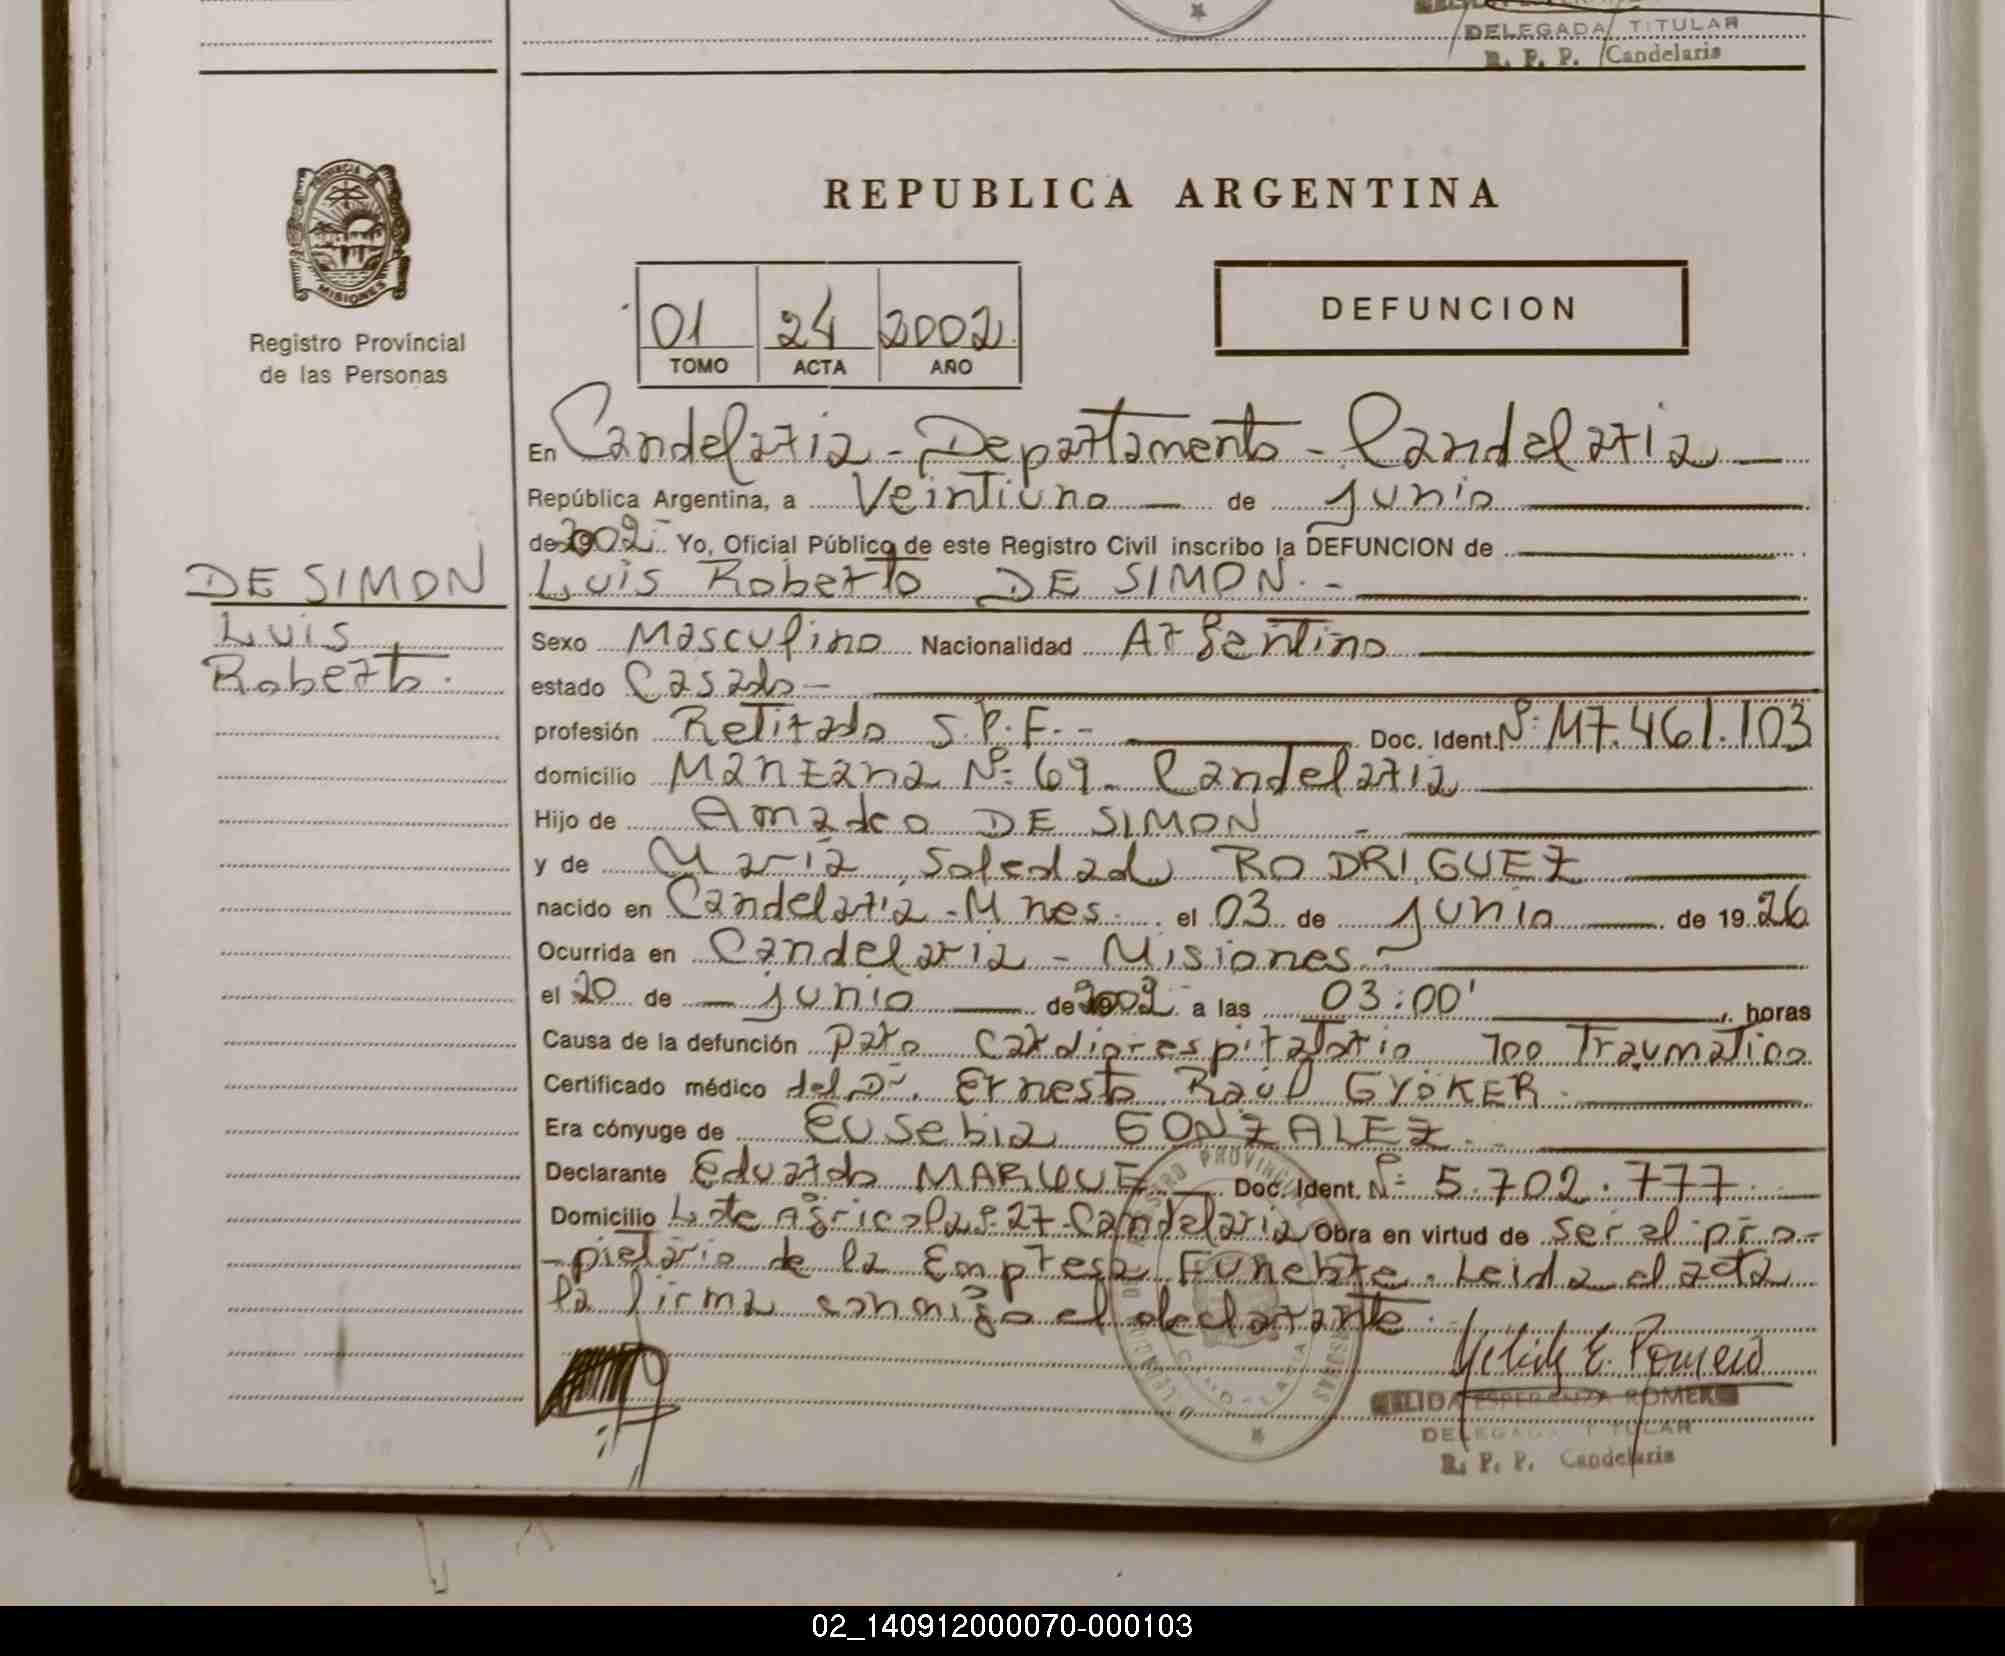 DELEGADA TITULAR
R. P. P. Candelaria
PROVINCIA DE
MISIONES
Registro Provincial
de las Personas
REPUBLICA ARGENTINA
01 24 2002
TOMO ACTA AÑO
DEFUNCION
En Candelaria - Departamento - Candelaria
República Argentina, a Veintiuno de junio
de 2002 Yo, Oficial Público de este Registro Civil inscribo la DEFUNCION de
DE SIMON
Luis
Roberto.
Luis Roberto DE SIMON. -
Sexo Masculino Nacionalidad Argentino
estado Casado -
profesión Retirado S.P.F. - Doc. Ident. Nº: M7.461.103
domicilio Manzana Nº: 69 - Candelaria
Hijo de Amadeo DE SIMON -
y de Maria Soledad RODRIGUEZ
nacido en Candelaria - Mnes. el 03 de junio de 1926
Ocurrida en Candelaria - Misiones -
el 20 de junio de 2002 a las 03:00' horas
Causa de la defunción Paro Cardiorespiratorio Traumatico
Certificado médico del Dr. Ernesto Raúl GYÖKER.
Era cónyuge de Eusebia GONZALEZ.
Declarante Eduardo MARQUE Doc. Ident. Nº: 5.702.777.
Domicilio Lote Agricola 27 - Candelaria Obra en virtud de ser el pro-
-pietario de la Empresa Funebre. Leida el acta
la firma conmigo el declarante.
Nelida E. Romero
NELIDA ESPERANZA ROMERO
DELEGADA TITULAR
R. P. P. Candelaria
02_140912000070-000103